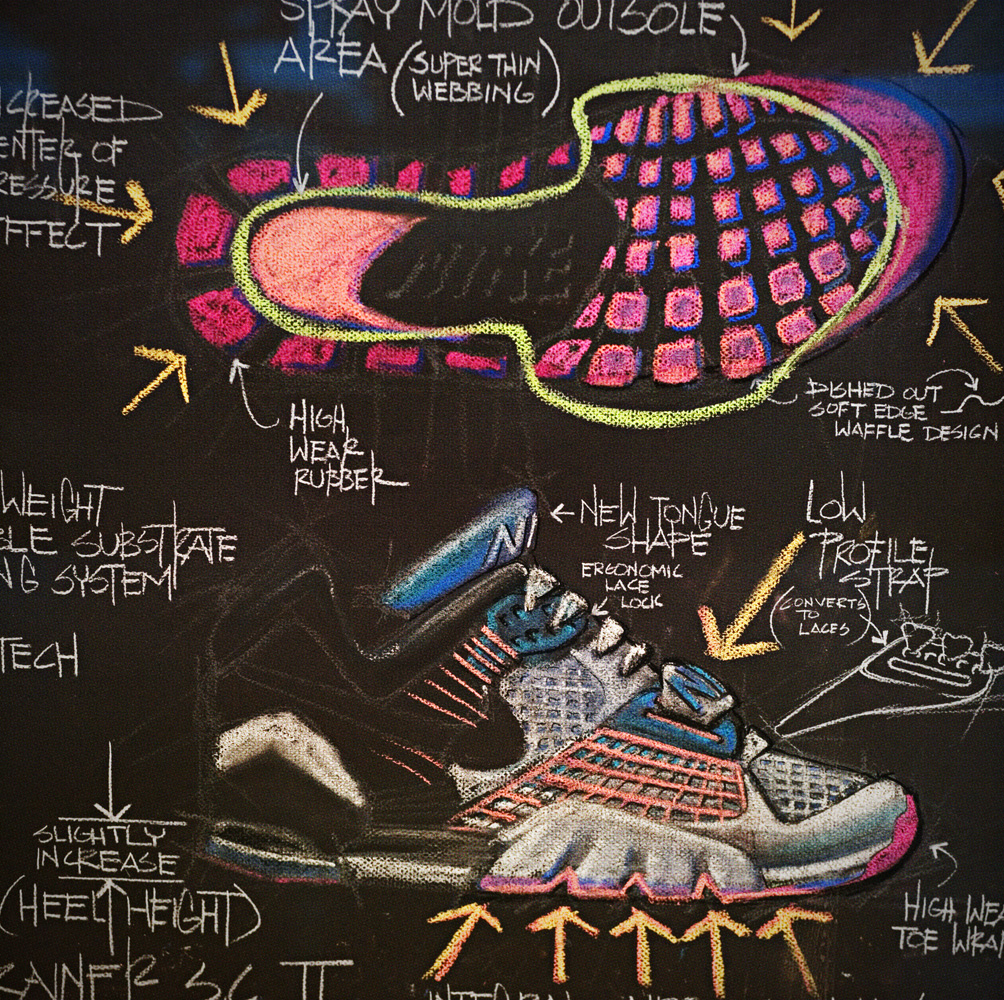 SPRAY MOLD OUTSOLE
AREA (SUPER THIN
WEBBING)
CREASED
ENTER OF
RESSURE
FFECT
NIKE
HIGH
WEAR
RUBBER
DISHED OUT
SOFT EDGE
WAFFLE DESIGN
WEIGHT
BLE SUBSTRATE
NG SYSTEM
TECH
NEW TONGUE
SHAPE
ERGONOMIC
LACE
LOCK
LOW
PROFILE
STRAP
(CONVERTS
TO
LACES)
NI
N
SLIGHTLY
INCREASE
(HEEL HEIGHT)
HIGH WEA
TOE WRA
RAINER SC II